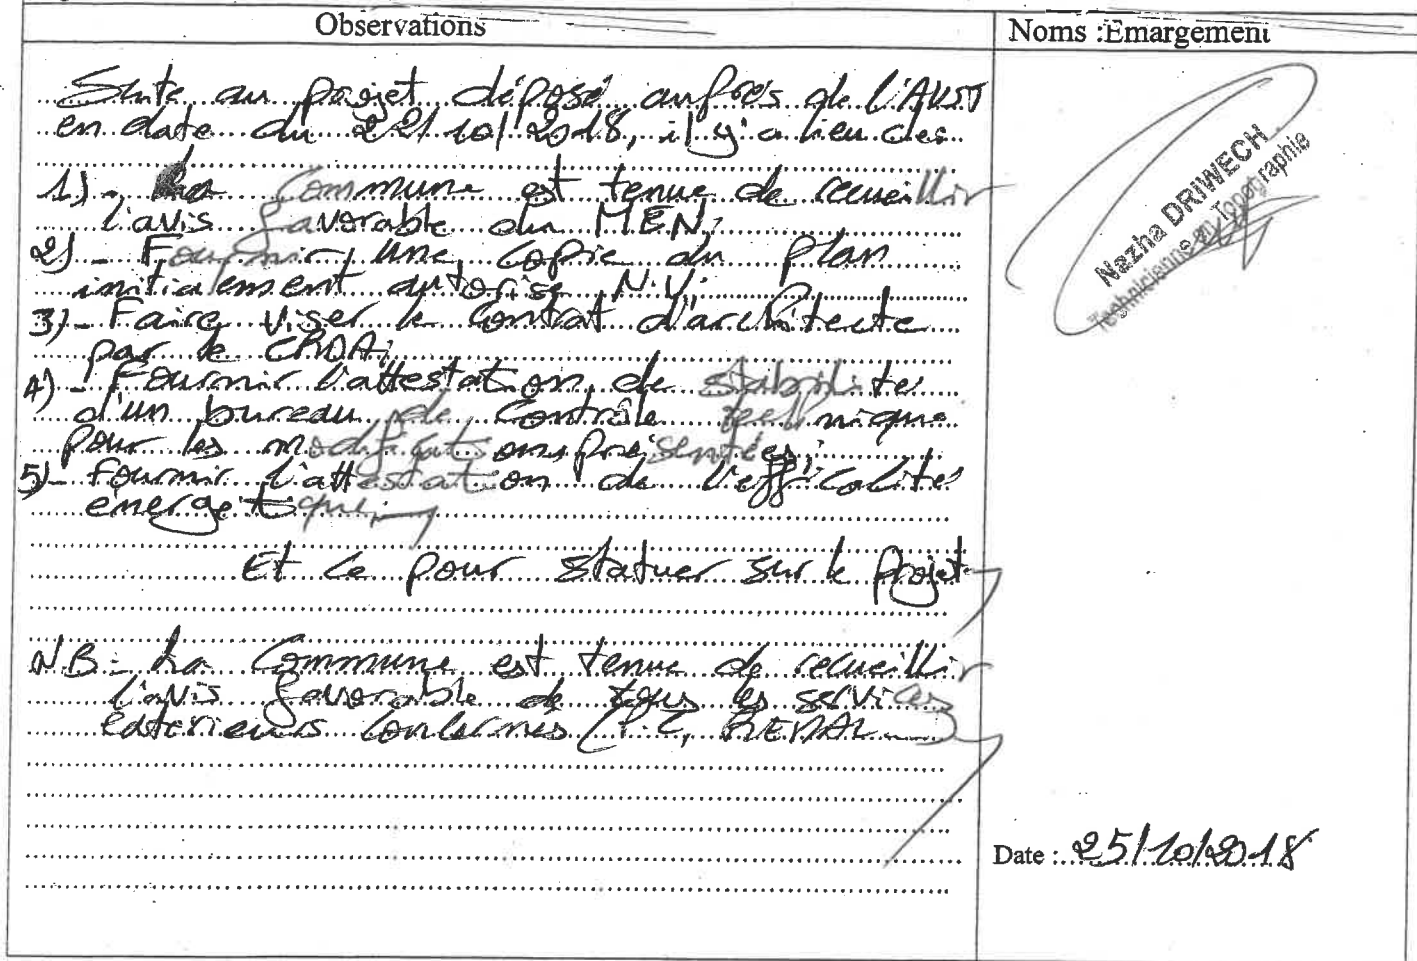 Observations
Noms :Emargement
Suite au projet déposé auprès de l'AUST
en date du 22/10/2018, il y'a lieu des
1)- La Commune est tenue de recueillir
l'avis favorable du MEN;
2)- Fournir une copie du plan
initialement autorisé N.V.
3)- Faire viser le contrat d'architecte
par le CROA;
4)- Fournir l'attestation de stabilité
d'un bureau de contrôle technique
pour les modifications présentées;
5)- Fournir l'attestation de l'efficacité
énergétique;
Et ce pour statuer sur le projet
N.B- La Commune est tenue de recueillir
l'avis favorable de tous les services
extérieurs concernés (P.C, REDAL
Nazha DRIWECH
Technicienne en Topographie
Date : 25/10/2018